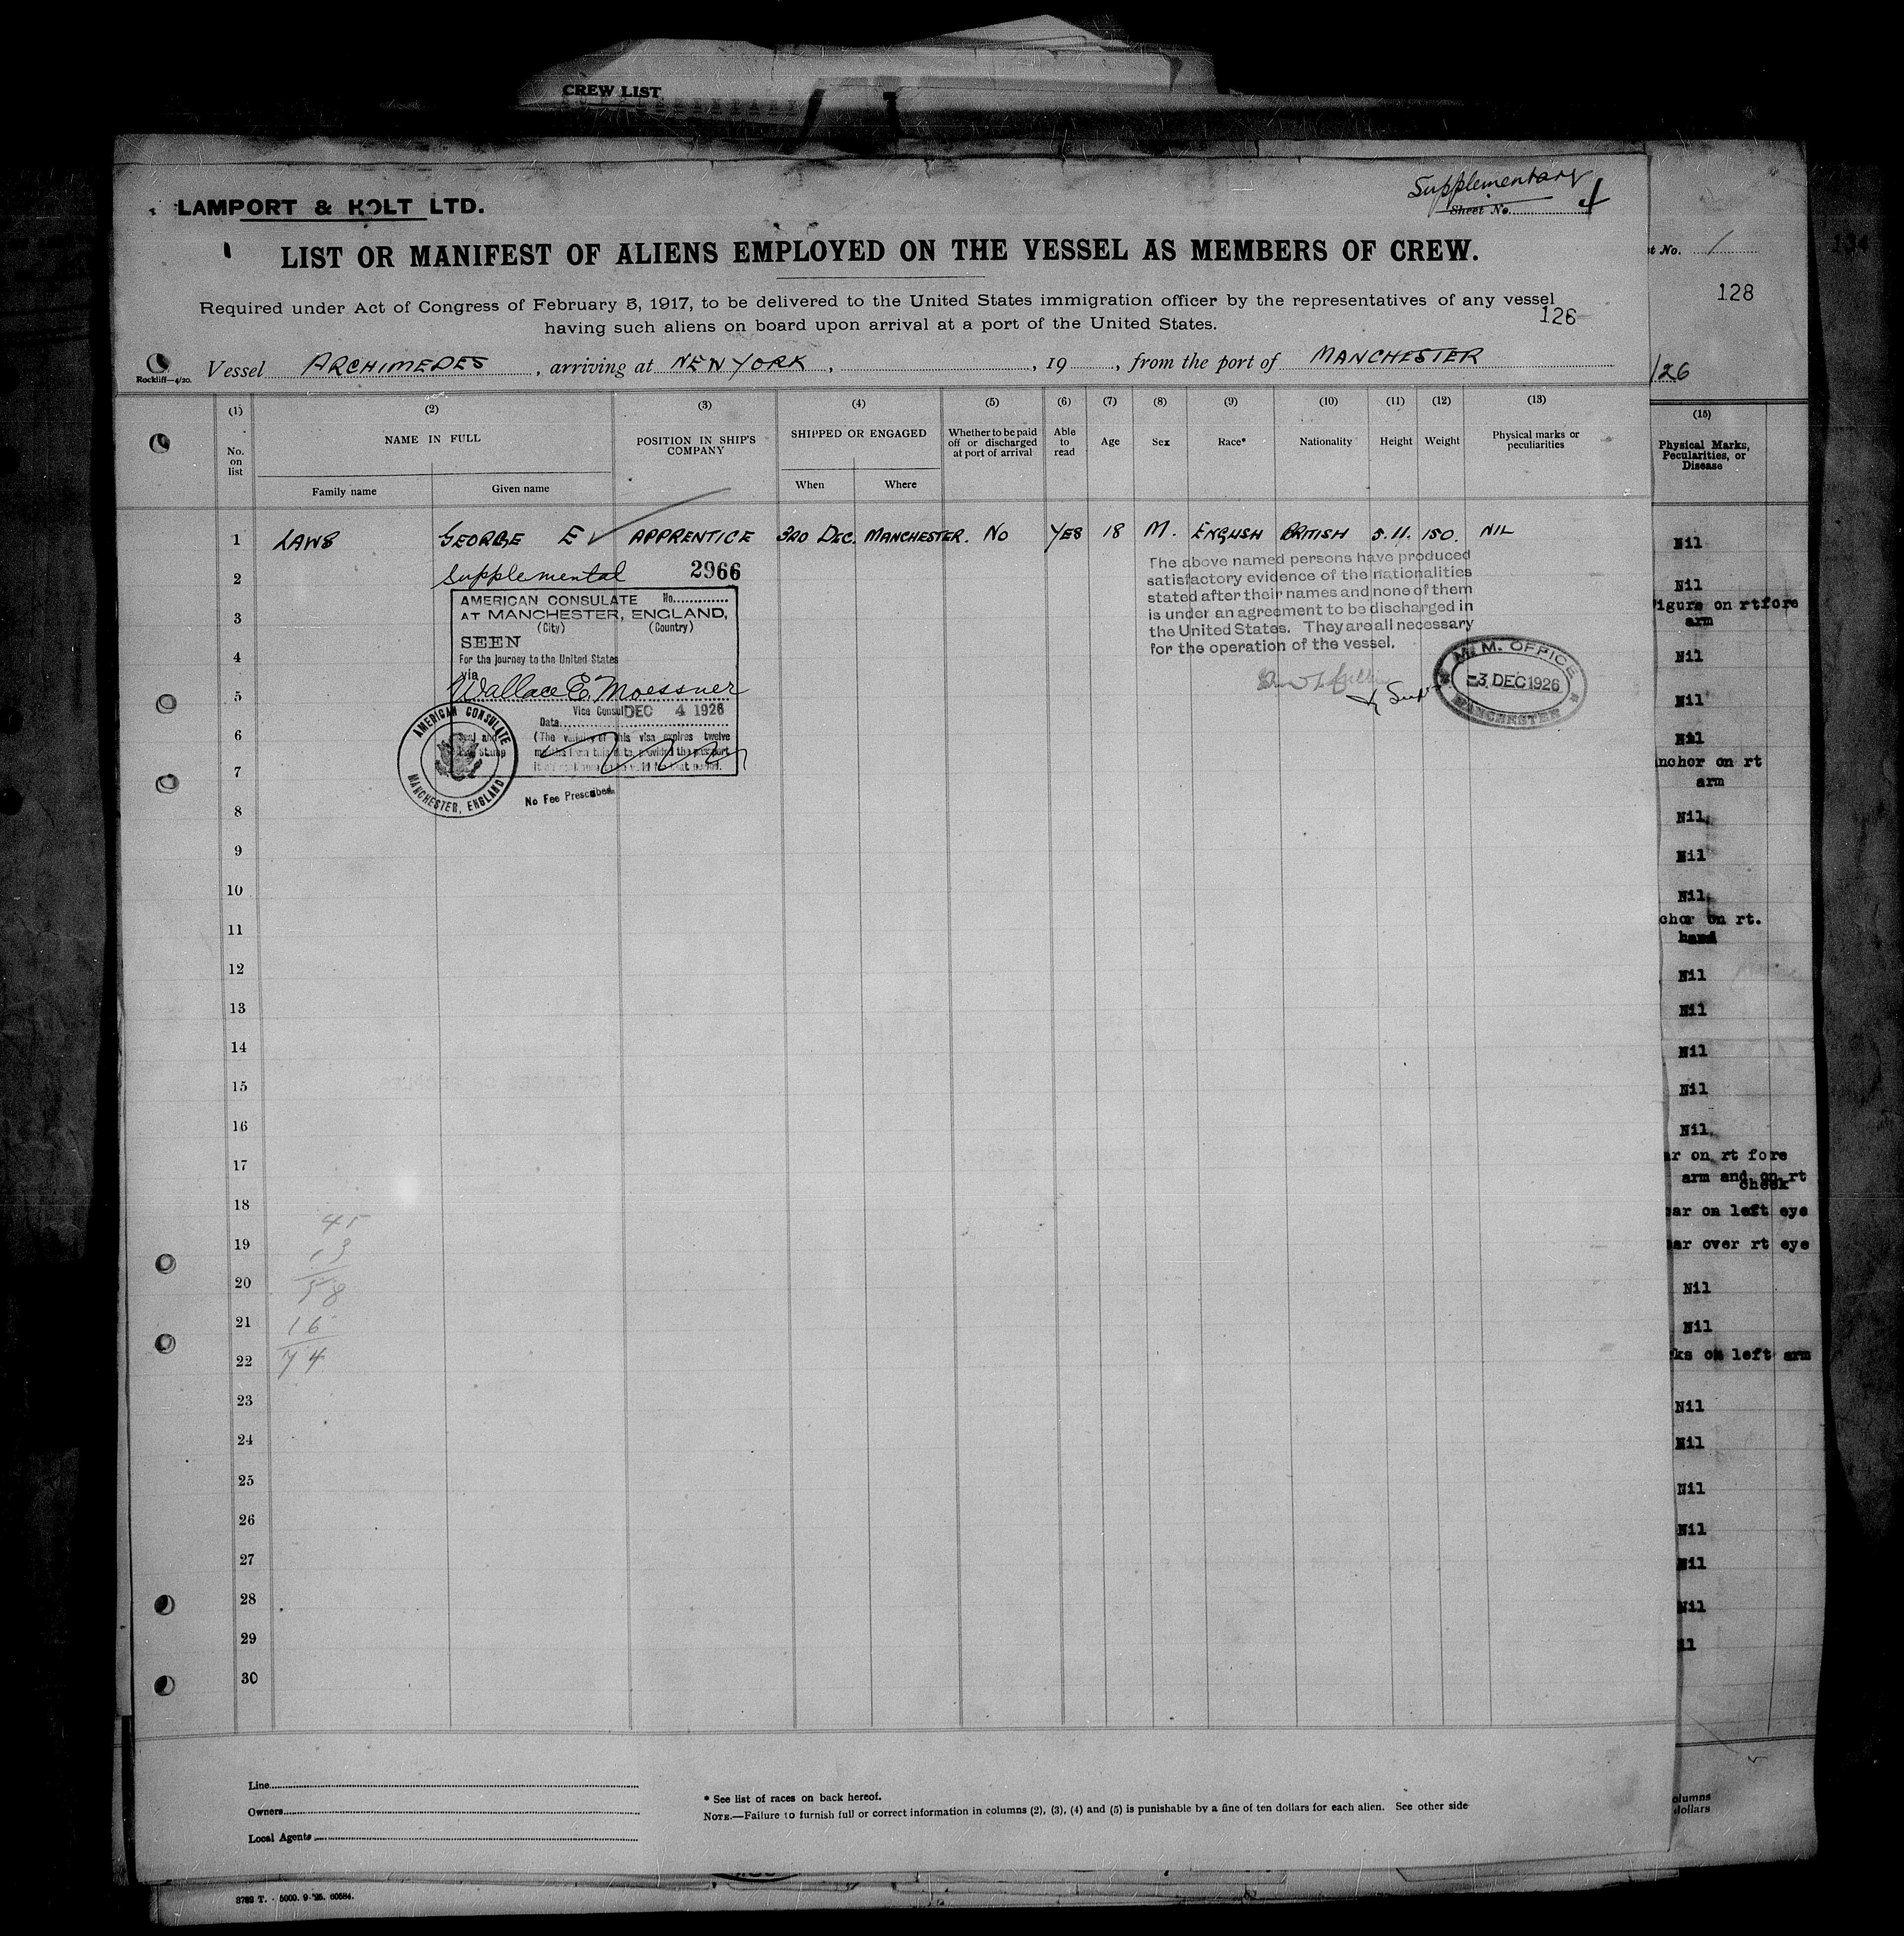 CREW LIST
LAMPORT & HOLT LTD.
Supplementary
Sheet No.
LIST OR MANIFEST OF ALIENS EMPLOYED ON THE VESSEL AS MEMBERS OF CREW.
Required under Act of Congress of February 5, 1917, to be delivered to the United States immigration officer by the representatives of any vessel
having such aliens on board upon arrival at a port of the United States.
126
Vessel ARCHIMEDES, arriving at NEW YORK, , 19 , from the port of MANCHESTER
Rockliff—4/20.
(1) (2) (3) (4) (5) (6) (7) (8) (9) (10) (11) (12) (13)
No. on list
NAME IN FULL
Family name
Given name
POSITION IN SHIP'S COMPANY
SHIPPED OR ENGAGED
When
Where
Whether to be paid off or discharged at port of arrival
Able to read
Age
Sex
Race*
Nationality
Height
Weight
Physical marks or peculiarities
1 LAWS GEORGE E APPRENTICE 3RD DEC. MANCHESTER. NO YES 18 M. ENGLISH BRITISH 5.11. 150. NIL
2
3
4
5
6
7
8
9
10
11
12
13
14
15
16
17
18
19
20
21
22
23
24
25
26
27
28
29
30
Supplemental 2966
AMERICAN CONSULATE No.
AT MANCHESTER, ENGLAND,
(City) (Country)
SEEN
For the journey to the United States
via
Wallace E. Moessner
Vice Consul
Date DEC 4 1926
(The validity of this visa expires twelve
months from this date, provided the passport
AMERICAN CONSULATE
MANCHESTER, ENGLAND
No Fee Prescribed.
The above named persons have produced
satisfactory evidence of the nationalities
stated after their names and none of them
is under an agreement to be discharged in
the United States. They are all necessary
for the operation of the vessel.
M. M. OFFICE
-3 DEC 1926
MANCHESTER
45
13
58
16
74
Line
Owners
Local Agents
* See list of races on back hereof.
NOTE.—Failure to furnish full or correct information in columns (2), (3), (4) and (5) is punishable by a fine of ten dollars for each alien. See other side
t No. 1
128
/26
(15)
Physical Marks,
Pecularities, or
Disease
Nil
Nil
igure on rtfore
arm
Nil
Nil
Nil
nchor on rt
arm
Nil
Nil
Nil
chor on rt.
hand
Nil
Nil
Nil
Nil
Nil
ar on rt fore
arm and on rt
cheek
ar on left eye
ar over rt eye
Nil
Nil
ks on left arm
Nil
Nil
Nil
Nil
Nil
Nil
il
olumns
dollars
134